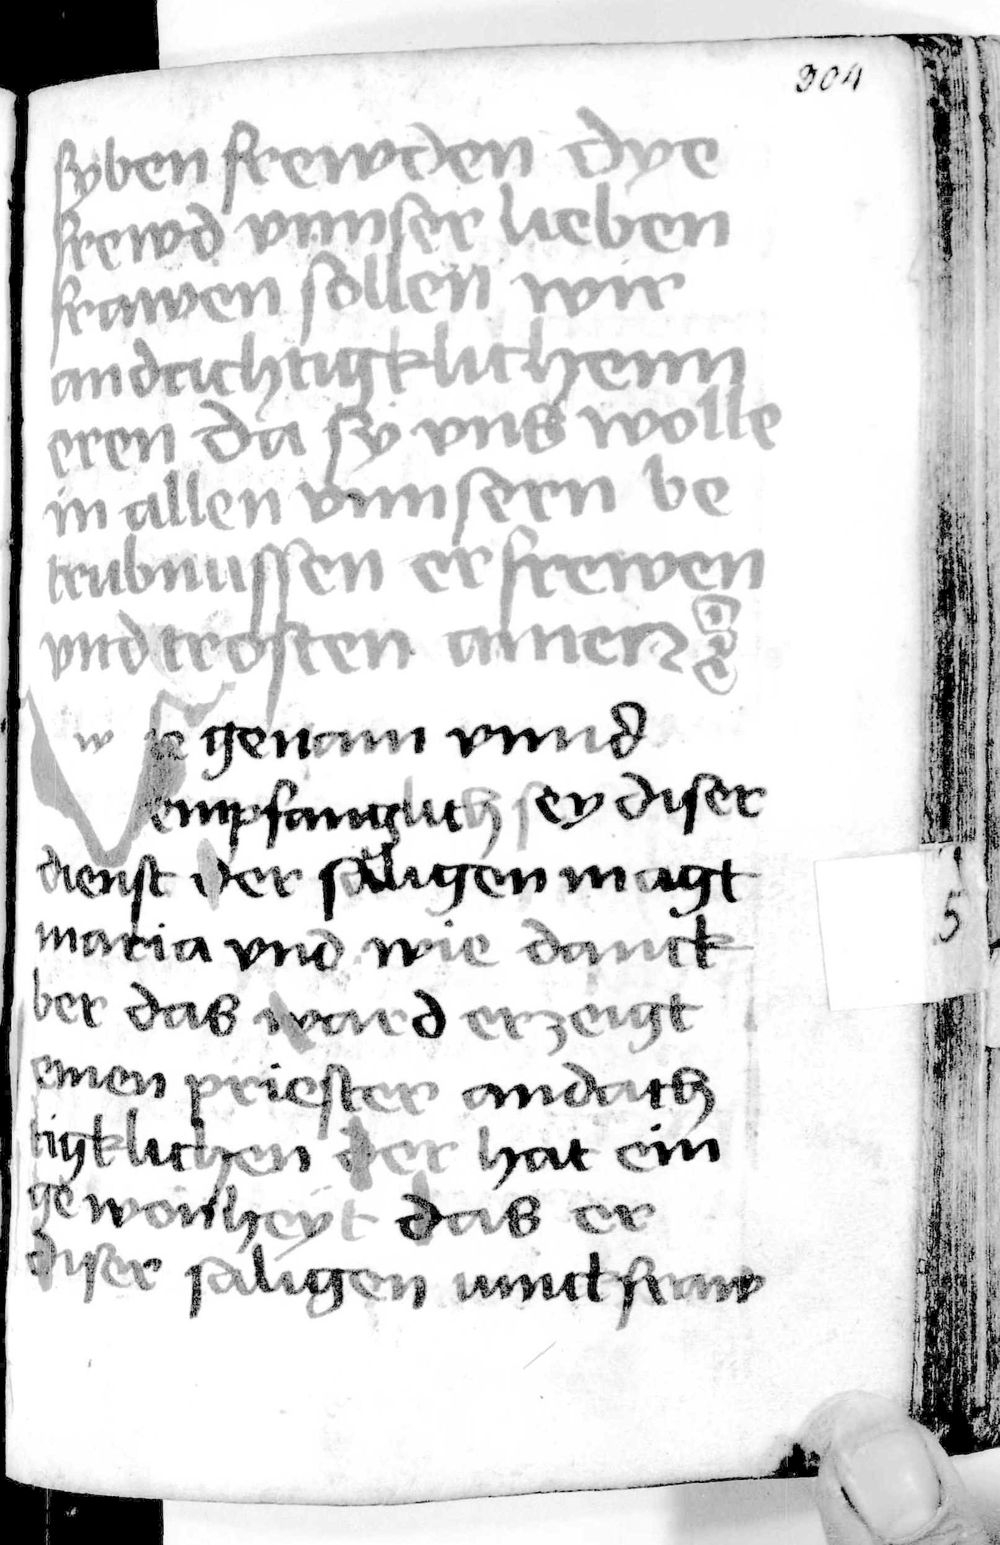 304
syben frewden dye
frewd vnnser lieben
frawen söllen wir
andächtigklichenn
eren da sy vns wölle
in allen vnnsern be
trübnussen erfrewen
vnd trösten amen
w ie genam vnnd
empfanglich sey diser
dienst der säligen magt
maria vnd wie danck
ber das ward erzeigt
einen priester andäch
tigklichen der hat ein
gewonheyt das er
diser säligen iunckfraw
5